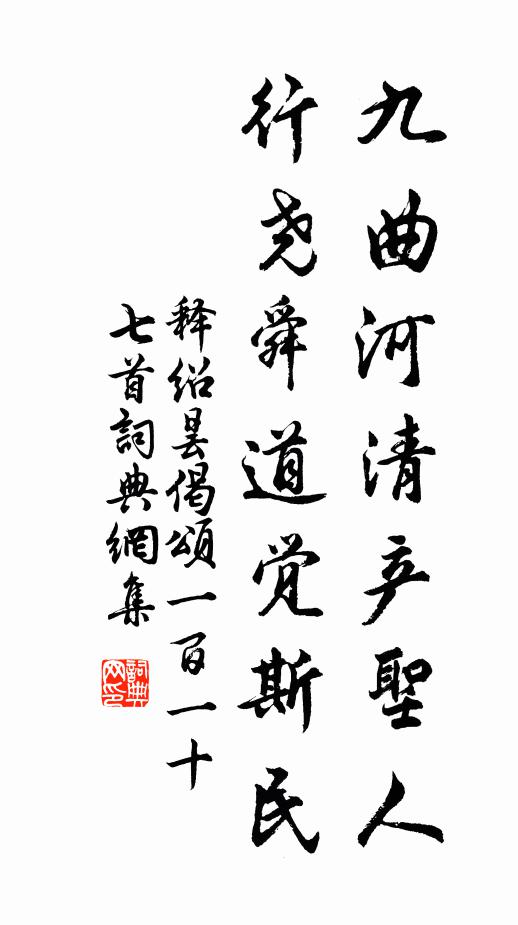 九曲河清产聖人
行尧舜道觉斯民
释绍昙偈颂一百一十
七首詞典網集
詞典网印